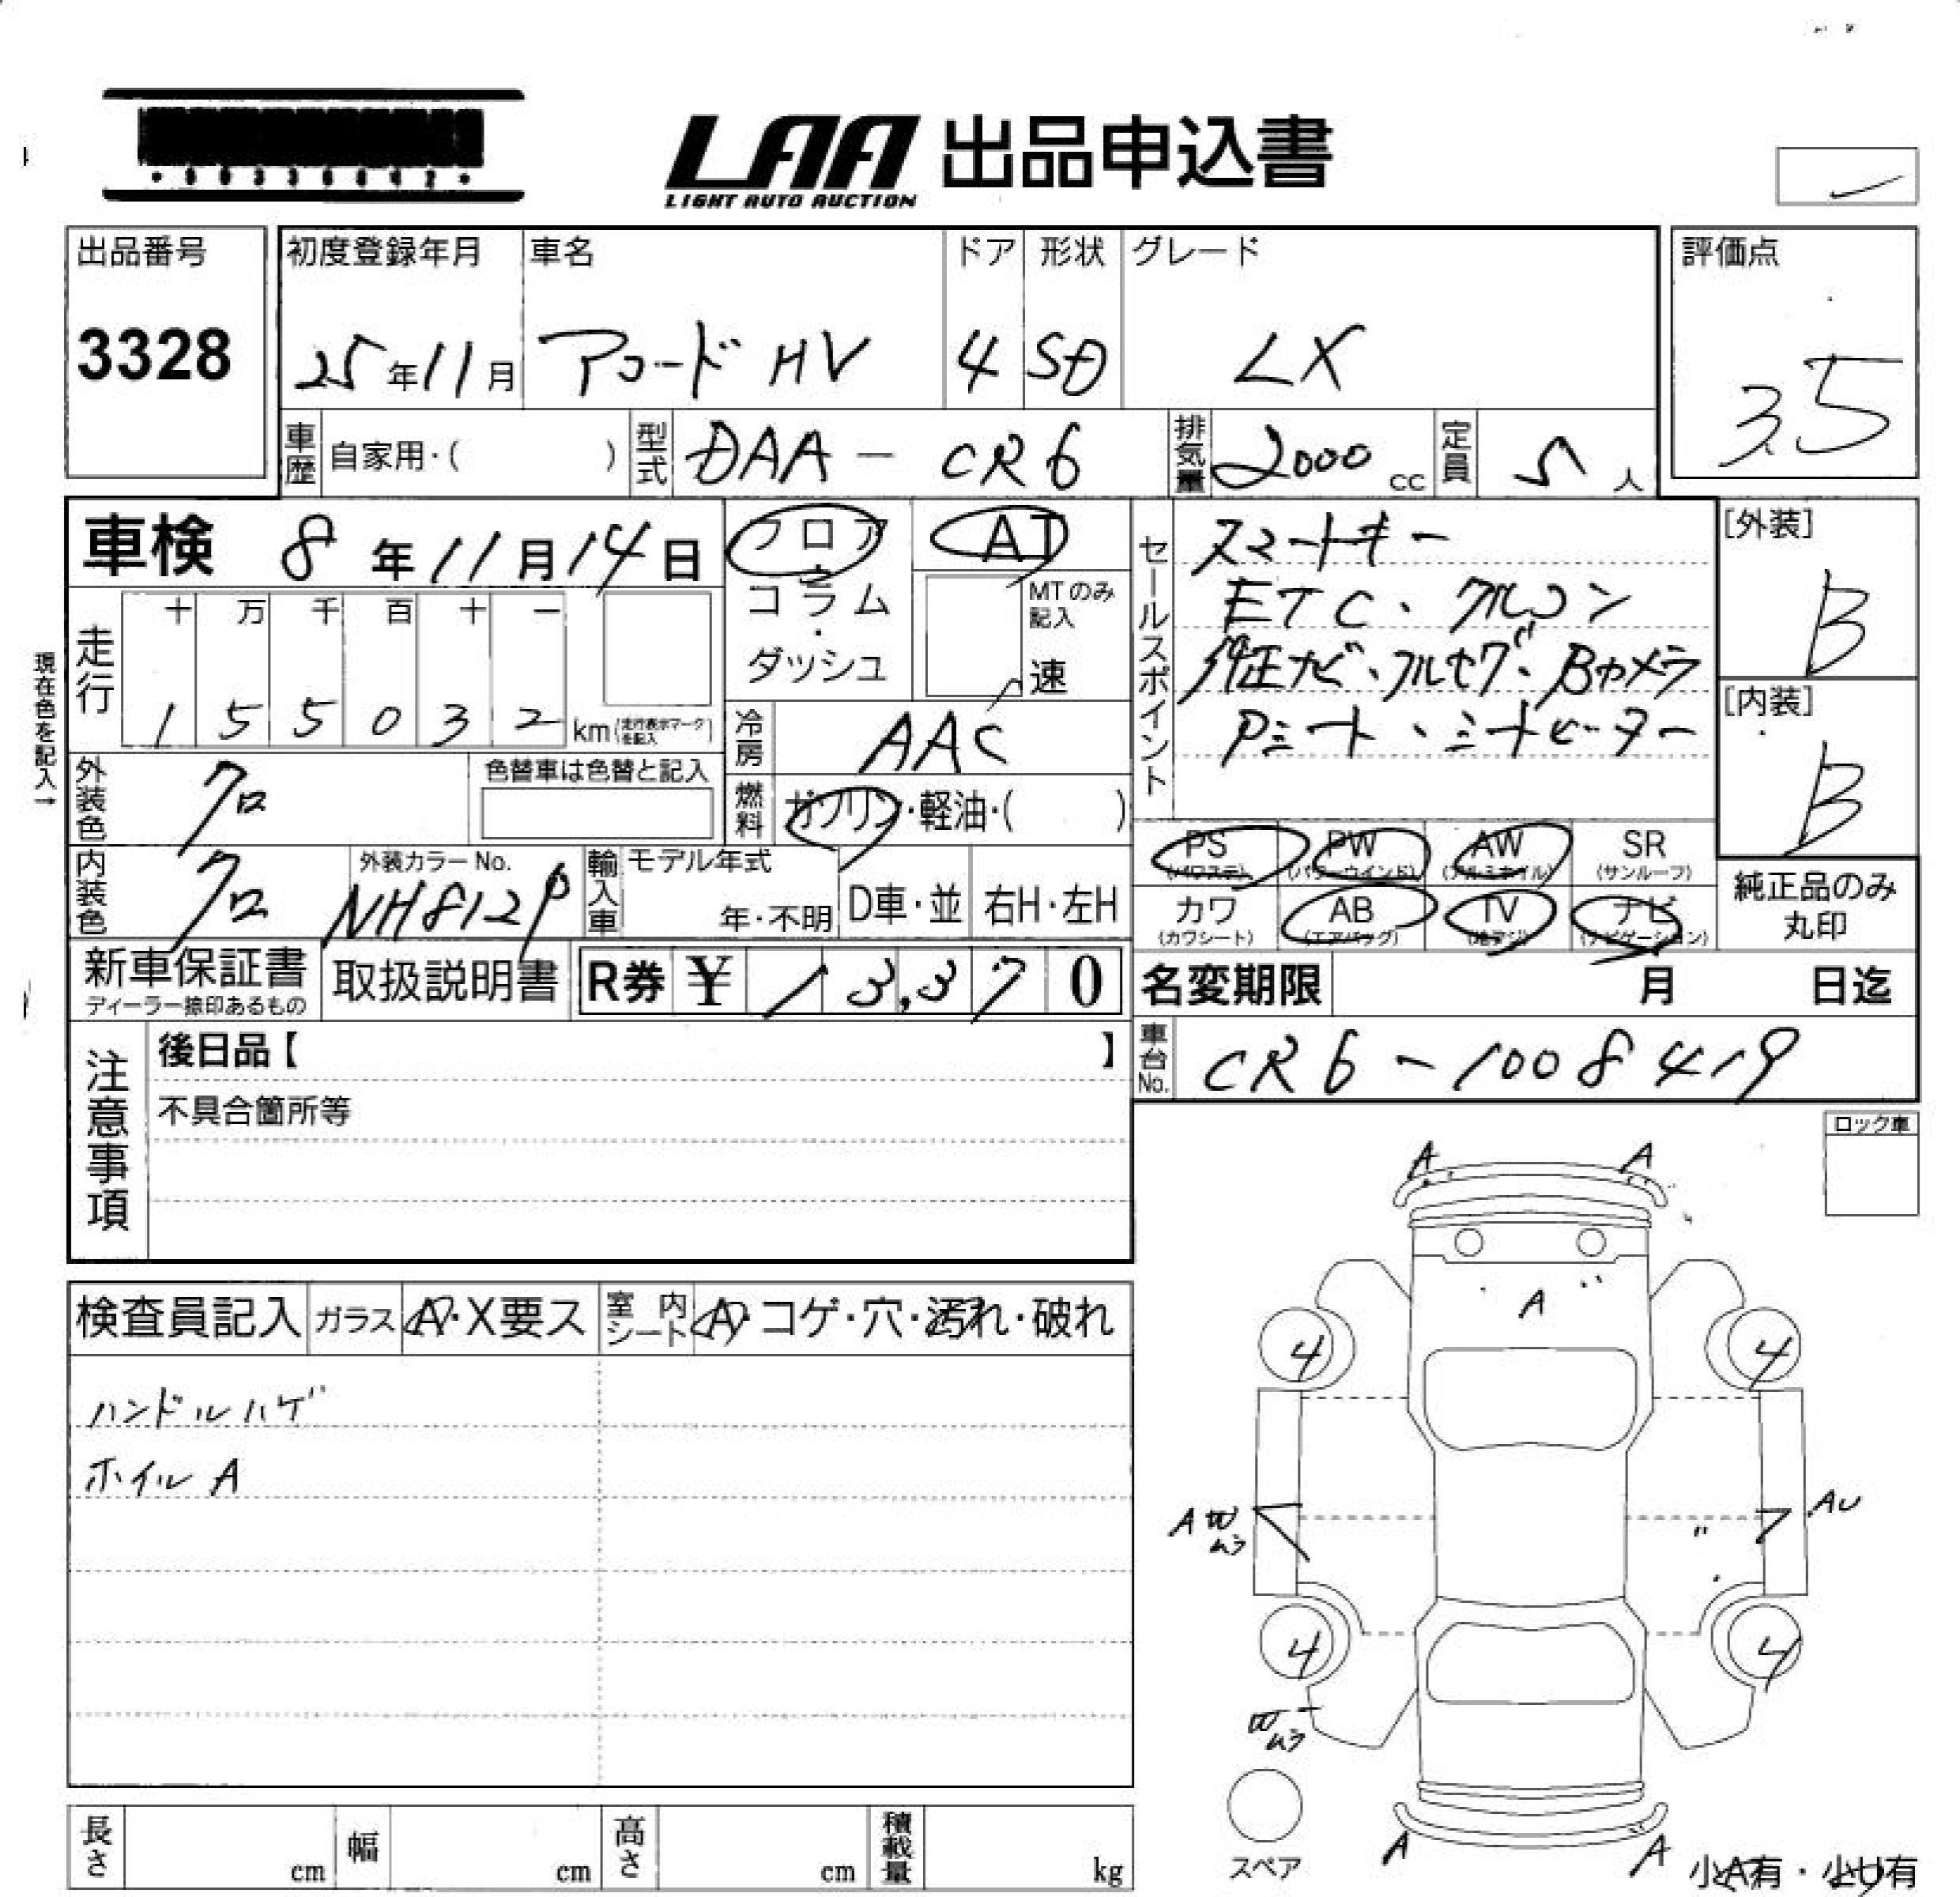 LAA 出品申込書
LIGHT AUTO AUCTION
出品番号
3328
初度登録年月
25年11月
車名
アコードHV
ドア
4
形状
SD
グレード
LX
評価点
3.5
車歴
自家用・( )
型式
DAA-CR6
排気量
2000cc
定員
5人
車検 8年11月14日
フロア
コラム
・
ダッシュ
AT
MTのみ記入
速
セールスポイント
スマートキー
ETC、クルコン
純正ナビ、フルセグ、Bカメラ
Pシート、シートヒーター
[外装]
B
[内装]
B
現在色を記入→
走行
十 万 千 百 十 一
1 5 5 0 3 2 km(走行表示マークを記入)
冷房
AAC
外装色
クロ
色替車は色替と記入
燃料
ガソリン・軽油・( )
PS
(パワステ)
PW
(パワーウインド)
AW
(アルミホイル)
SR
(サンルーフ)
内装色
クロ
外装カラーNo.
NH812P
輸入車
モデル年式
年・不明
D車・並
右H・左H
カワ
(カワシート)
AB
(エアバッグ)
TV
(地デジ)
ナビ
(ナビゲーション)
純正品のみ
丸印
新車保証書
ディーラー捺印あるもの
取扱説明書
R券 ¥ 13,370
名変期限 月 日迄
車台No.
CR6-1008419
注意事項
後日品【 】
不具合箇所等
ロック車
検査員記入
ガラス
A・X要ス
室内シート
A・コゲ・穴・汚れ・破れ
ハンドルハゲ
ホイルA
A A
A
4 4
A W
ムラ
AU
4 4
W
ムラ
スペア
A A
小A有・小U有
長さ cm
幅 cm
高さ cm
積載量 kg